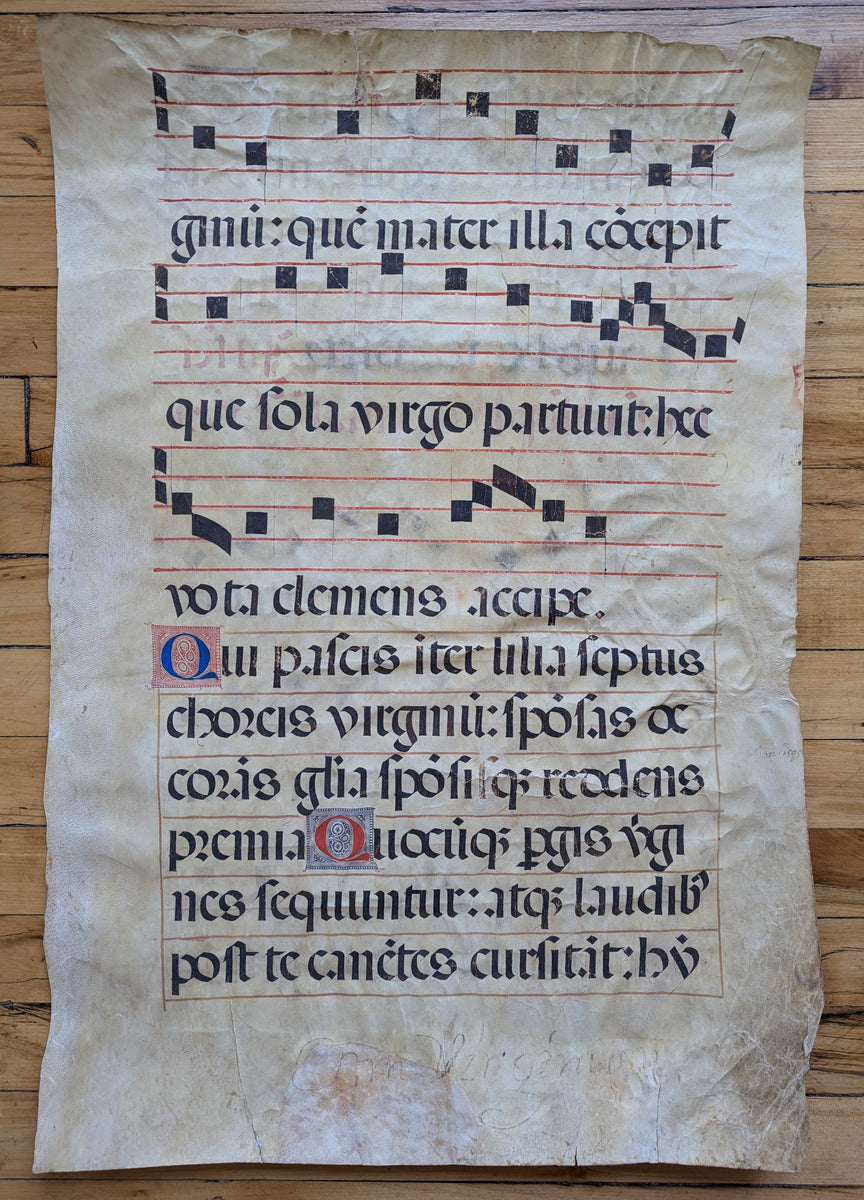 ginū: quē mater illa cōcepit
que sola virgo parturit: hec
vota clemens accipe.
Qui pascis īter lilia septus
choreis virginū: spōsas de
corās glīa spōsisqꝫ reddens
premia Quocūqꝫ ꝑgis v̄gi
nes sequuntur: atqꝫ laudibꝰ
post te canētes cursitāt: hȳ